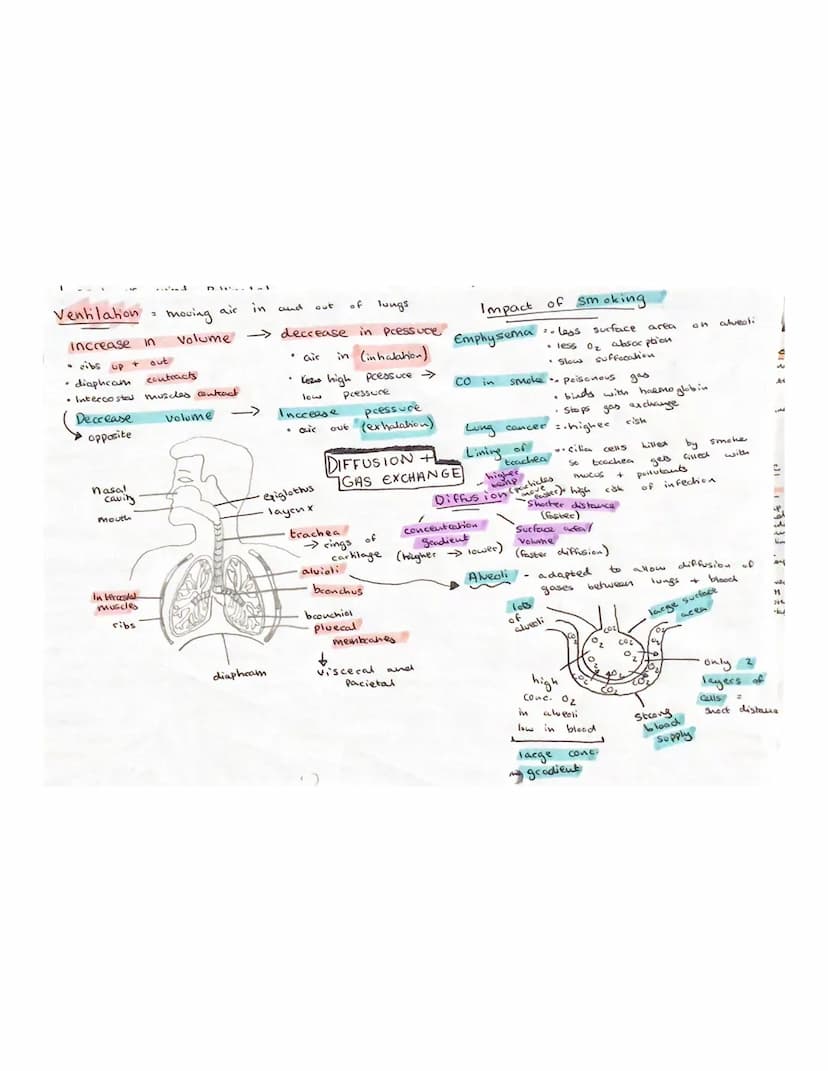 Ventilation = moving air in and out of lungs
Increase in volume → decrease in pressure
• ribs up + out
• diaphram contracts
• Intercostal muscles contract
• air in (inhalation)
• high pressure →
low pressure
Decrease volume → Increase pressure
opposite
• air out (exhalation)
Impact of smoking
Emphysema = • less surface area on alveoli
• less O2 absorption
• slow suffocation
CO in smoke = • poisonous gas
• binds with haemoglobin
• stops gas exchange
Lung cancer = • higher risk
Lining of
trachea
= • cilia cells killed by smoke
so trachea gets filled with
mucus + pollutants
• high risk of infection
DIFFUSION +
GAS EXCHANGE
Nasal
cavity
mouth
epiglottus
larynx
trachea
→ rings of
cartilage
alvioli
bronchus
Intercostal
muscles
ribs
bronchiol
plueral
membranes
↓
visceral and
parietal
diaphram
Diffusion
higher
temp
(particles
move
faster)
shorter distance
(faster)
concentration
gradient
(higher → lower)
surface area/
volume
(faster diffusion)
Alveoli - adapted to allow diffusion of
gases between lungs + blood
lots
of
alveoli
large surface
area
CO2
O2
CO2
O2
CO2
O2
O2
O2
O2
CO2
CO2
CO2
only 2
layers of
cells =
short distance
high
conc. O2
in alveoli
low in blood
large conc.
gradient
strong
blood
supply